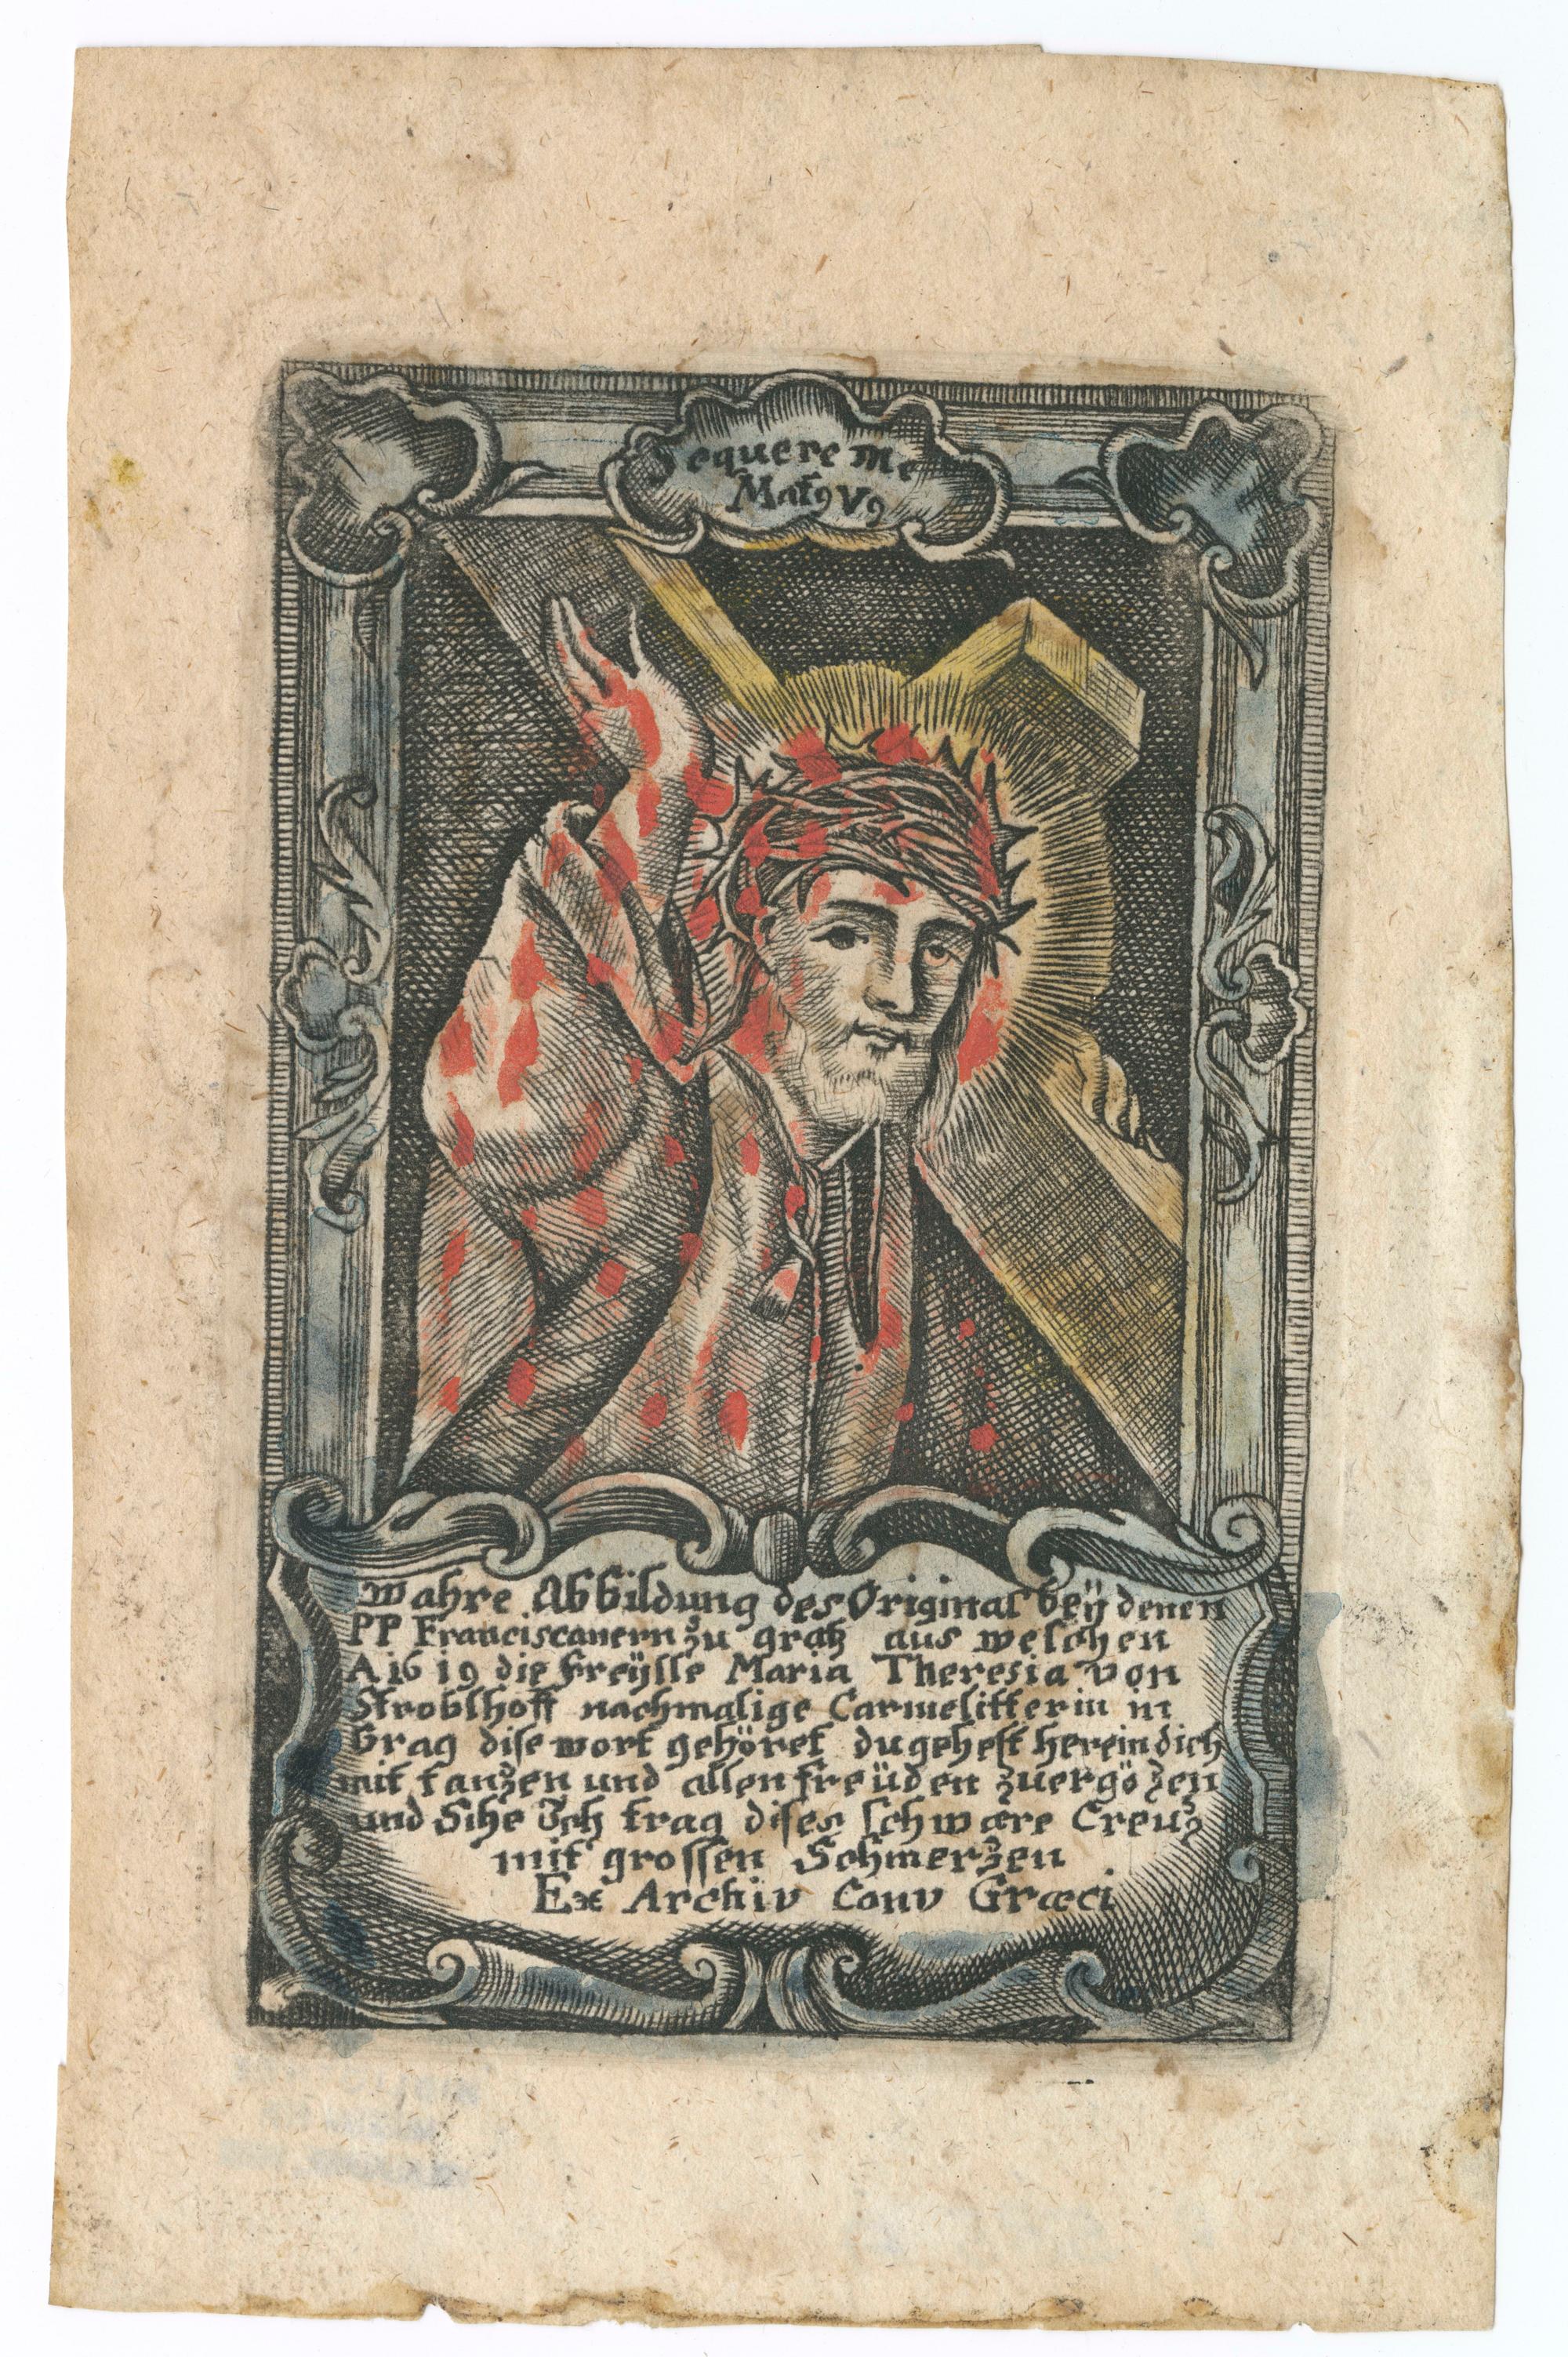 Sequere Me
Mat 9 V 9
Wahre Abbildung des Original beÿ denen
PP Franciscanern zu gratz aus welchen
A 1619 die Freÿlle Maria Theresia von
Stroblhoff nachmalige Carmelitterin in
Grag dise wort gehöret du gehest herein dich
mit tanzen und allen freüden zuergözen
und Sihe Ich trag dises schwære Creuz
mit grossen Schmerzen
Ex Archiv Conv Græci